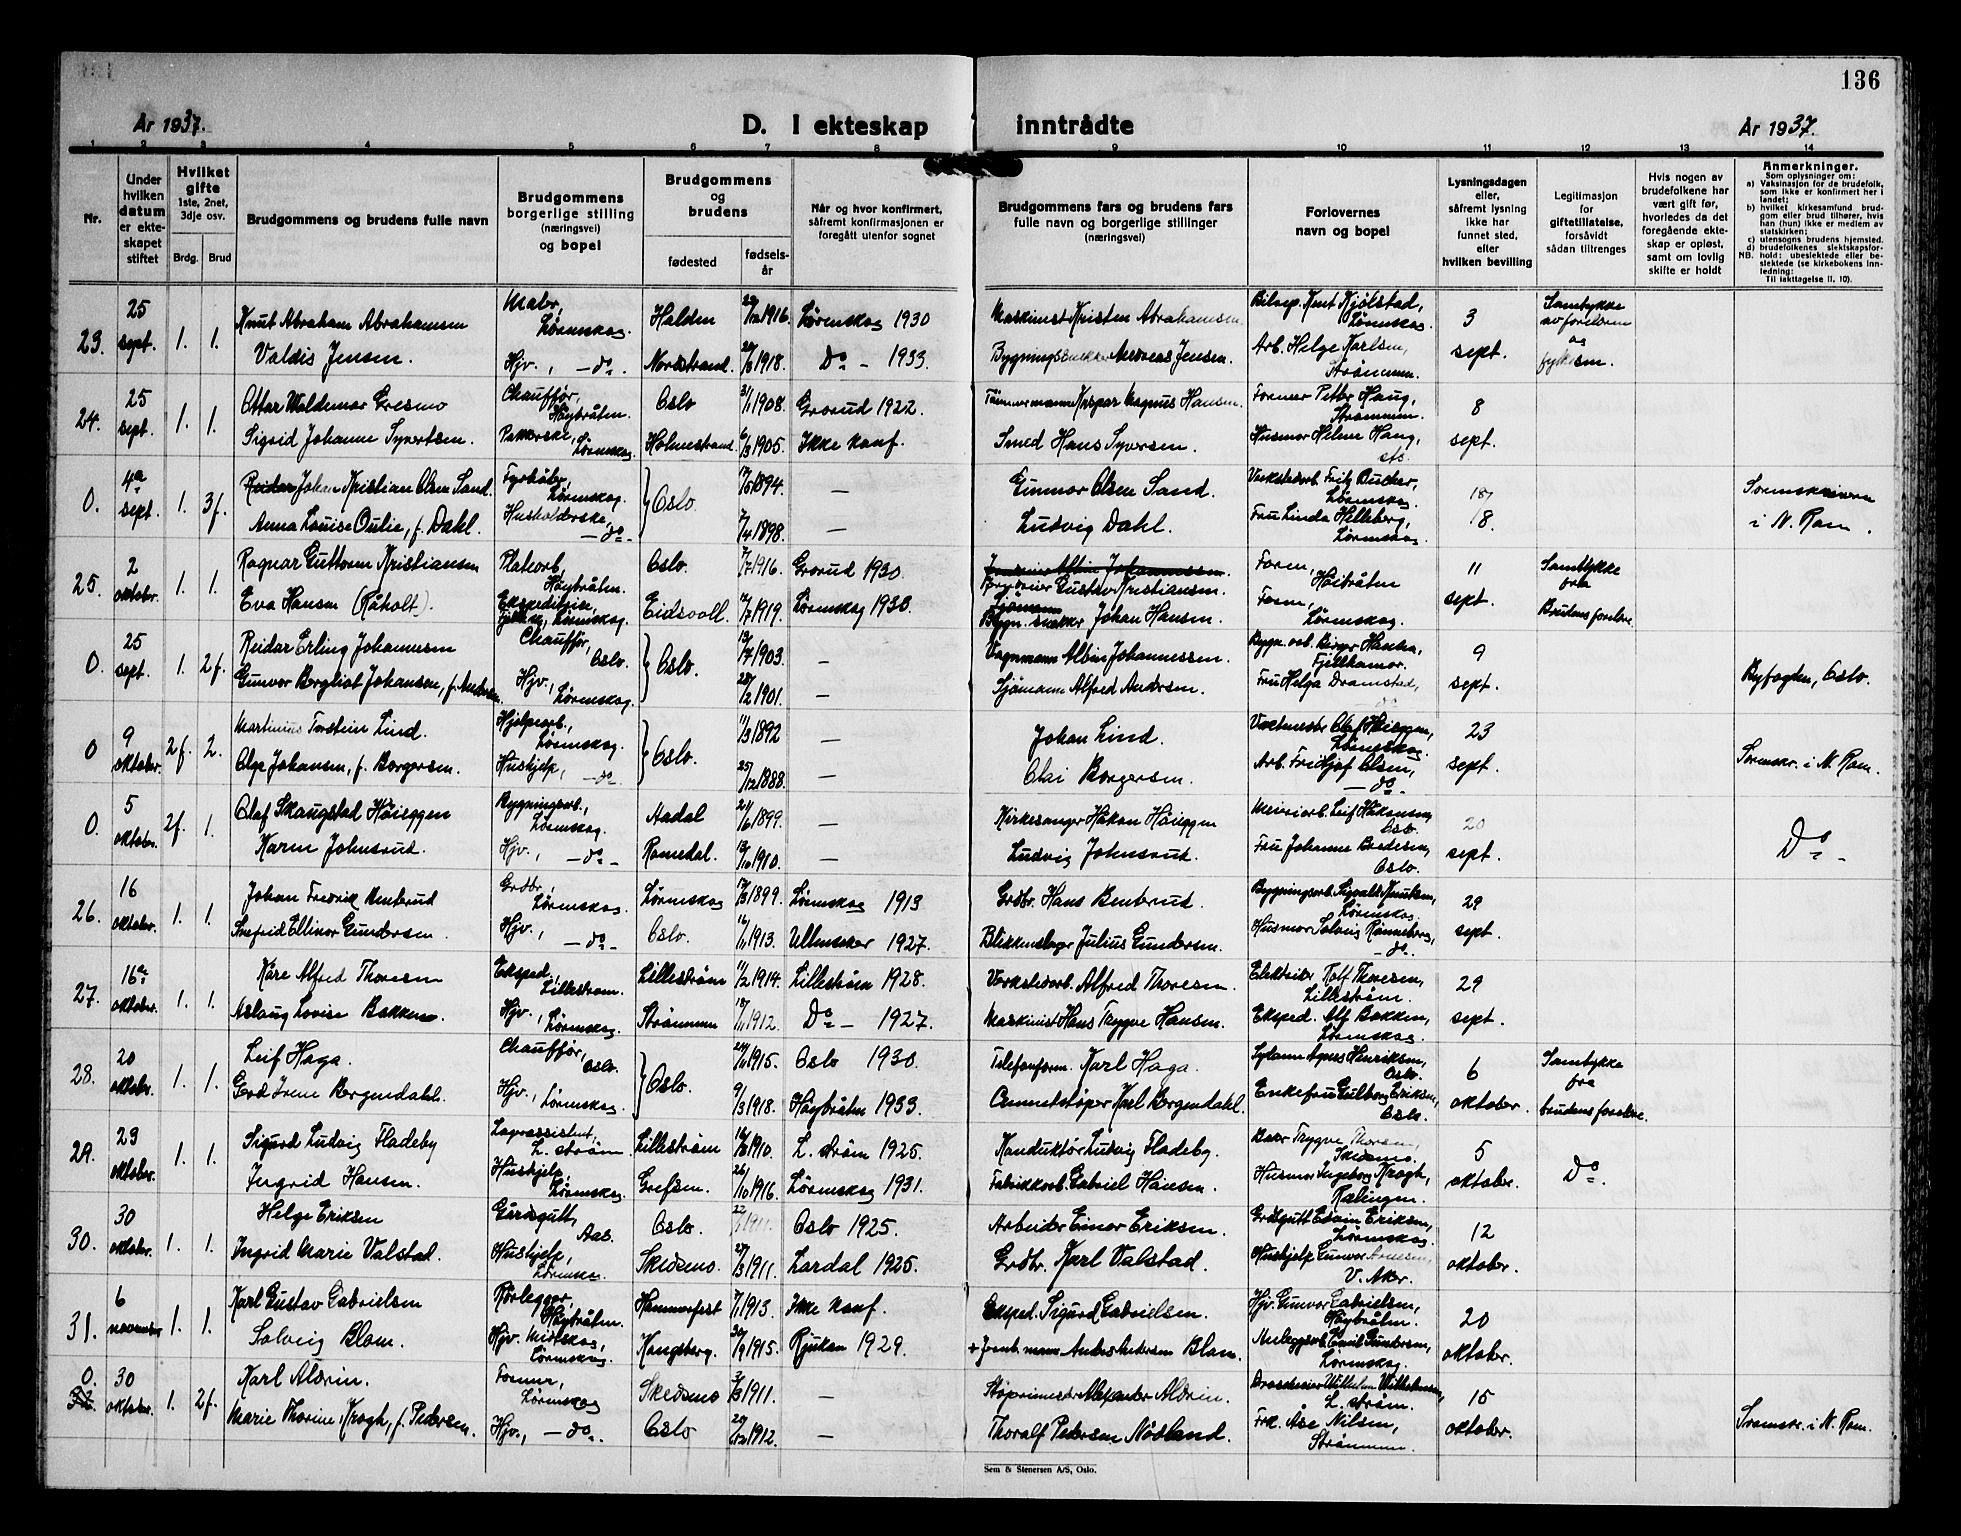 136
År 1937.
D. I ekteskap inntrådte
År 1937.
1 2 3 4 5 6 7 8 9 10 11 12 13 14
Nr.
Under hvilken datum er ekteskapet stiftet
Hvilket gifte 1ste, 2net, 3dje osv.
Brdg. Brud
Brudgommens og brudens fulle navn
Brudgommens borgerlige stilling (næringsvei) og bopel
Brudgommens og brudens
fødested
fødselsår
Når og hvor konfirmert, såfremt konfirmasjonen er foregått utenfor sognet
Brudgommens fars og brudens fars fulle navn og borgerlige stillinger (næringsvei)
Forlovernes navn og bopel
Lysningsdagen eller, såfremt lysning ikke har funnet sted, eller hvilken bevilling
Legitimasjon for giftetillatelse, forsåvidt sådan tiltrenges
Hvis nogen av brudefolkene har vært gift før, hvorledes da det foregående ekteskap er opløst, samt om lovlig skifte er holdt
Anmerkninger.
Som oplysninger om:
a) Vaksinasjon for de brudefolk, som ikke er konfirmert her i landet;
b) hvilket kirkesamfund brudgom eller brud tilhører, hvis han (hun) ikke er medlem av statskirken;
c) utensogns brudens hjemsted.
d) brudefolkenes slektskapsforhold: ubeslektede eller beslektede (se kirkebokens innledning:
NB. Til iakttagelse II. 10).
23. 25 sept. 1. 1. Knut Abraham Abrahamsen Maler, Lørenskog. Halden 1916. Lørenskog 1930 Maskinist Kristen Abrahamsen Bilrep. Knut Kjølstad, Lørenskog. 3 sept. Samtykke av foreldrene og fylkesm.
Valdis Jensen. Hjv., -do-. Nordstrand. 1918. Do - 1933. Bygningssnekker Andreas Jensen. Arb. Helge Karlsen, Strømmen.
24. 25 sept. 1. 1. Ottar Waldemar Gresmo Chauffør, Høybråten. Oslo 3/1 1908. Grorud 1922. Tømmermann Kaspar Magnus Hansen. Former Petter Haug, Strømmen. 8 sept.
Sigrid Johanne Syvertsen. Pakkerske, Lørenskog Holmestrand 1905. Ikke konf. Smed Hans Syversen. Husmor Helene Haug, sts.
0. 4de sept. 1. 3f. Johan Kristian Olsen Sand. Fyrbøter, Lørenskog. Oslo. 1894. - Gunnar Olsen Sand. Verkstedarb. Fritz Bucher, Lørenskog 18/8. Sorenskriveren i N. Rom.
Anna Louise Oulie, f. Dahl. Husholderske, -do-. 7/4 1898. - Ludvig Dahl. Fru Linda Helleberg, Lørenskog.
25. 2 oktober. 1. 1. Ragnar Guttorm Kristiansen Platearb., Høybråten. Oslo. 7/7 1916. Grorud 1930. Gustav Kristiansen. Form, Høibråten 11 sept. Samtykke fra Brudens foreldre.
Eva Hansen (Råholt). Lørenskog. Eidsvoll. 1919. Lørenskog 1933. Bygn. snekker Johan Hansen. Lørenskog.
0. 25 sept. 1. 2f. Reidar Erling Johannesen Chauffør, Oslo. Oslo. 13/7 1903. - Vognmann Albin Johannessen. Bygn. arb. Birger Hansen, Fjellhamar. 9 sept. Byfogden, Oslo.
Gunvor Bergliot Johansen, f. Andersen. Hjv., Lørenskog. 28/2 1901. - Sjømann Alfred Andersen. Fru Helga Dramstad, do
0 9 oktober. 2f. 2. Martinius Torstein Lind. Hjelpearb., Lørenskog. Oslo. 11/3 1892 - Johan Lind. Vaktmester Olaf Høieggen, Lørenskog 23 sept. Sorenskr. i N. Rom.
Olga Johansen, f. Borgersen. Hushjelp, -do-. 25/12 1888. - Olai Borgersen. Arb. Fridtjof Olsen, -do-.
0. 5 oktober. 2f. 1. Olaf Skaugstad Høieggen Bygningsarb., Lørenskog. Aadal 21/6 1899. - Kirkesanger Håkon Høieggen Meieriarb. Leif Håkonsen, Oslo. 20 sept. Do
Karen Johnsrud. Hjv., -do- Romedal. 13/10 1910. - Ludvig Johnsrud. Fru Johanne Bendiksen, Oslo.
26. 16 oktober. 1. 1. Johan Fredrik Benterud Grdbr., Lørenskog. Lørenskog 1899. Lørenskog 1913 Grdbr. Hans Benterud. Bygningsarb. Sigvald Knutsen, Lørenskog. 29 sept.
Snefrid Ellinor Gundersen Hjv., -do- Oslo. 1913. Ullensaker 1927. Blikkenslager Julius Gundersen. Husmor Solveig Rønneberg, do.
27. 16de oktober. 1. 1. Kåre Alfred Thoresen Eksped., Lillestrøm. Lillestrøm 11/2 1914. Lillestrøm 1928. Verkstedarb. Alfred Thoresen. Elektriker Rolf Thoresen, Lillestrøm. 29 sept.
Aslaug Lovise Bakken. Hjv., Lørenskog. Strømmen 1912. Do - 1927. Maskinist Hans Trygve Hansen. Eksped. Alf Bakken, Lørenskog.
28. 20 oktober. 1. 1. Leif Haga. Chauffør, Oslo. Oslo. 1915. Oslo 1930. Telefonform. Karl Haga. Sydame Agnes Henriksen, Oslo. 6 oktober. Samtykke fra brudens foreldre.
Gerd Irene Bergendahl. Hjv., Lørenskog. 9/3 1918. Høybråten 1933. Cementstøper Karl Bergendahl. Enkefru Gulborg Eriksen, Oslo.
29. 29 oktober. 1. 1. Sigurd Ludvig Fladeby Lagerassistent, L. strøm Lillestrøm 1910. L. strøm 1925. Konduktør Ludvig Fladeby. Trygve Thoresen, Skedsmo. 5 oktober. Do.
Ingrid Hansen. Hushjelp, Lørenskog Grefsen. 26/10 1916. Lørenskog 1931. Fabrikkarb. Gabriel Hansen. Husmor Ingeborg Krogh, Rælingen.
30. 30 oktober. 1. 1. Helge Eriksen Gårdsgutt, Aas. Oslo. 1911. Oslo 1925. Arbeider Einar Eriksen. Grdsgutt Edvin Eriksen, Lørenskog. 12 oktober.
Ingrid Marie Valstad. Hushjelp, Lørensk. Skedsmo. 27/3 1911. Lardal 1925. Grdbr. Karl Valstad. Hushjelp Gunvor Arnesen, V. Aker.
31. 6 november 1. 1. Karl Gustav Gabrielsen Rørlegger, Høybråten. Hammerfest 7/1 1913. Ikke konf. Eksped. Sigurd Gabrielsen. Hjv. Gunvor Gabrielsen, Høybråten. 20 oktober.
Solveig Blom. Hjv. Midtskog, Lørenskog. Kongsberg. 30/9 1915. Rjukan 1929. Anders Andersen Blom. Anleggsarb. Emil Gundersen, Lørenskog.
0. 30 oktober. 1. 2f. Karl Aldrin. Former, Lørenskog Skedsmo 1911. - Støperimester Alexander Aldrin. Wilhelm Wilhelmsen, L. strøm. 15 oktober. Sorenskr. i N. Rom.
Marie Thorine Krogh, f. Pedersen. Hjv., -do-. Oslo 29/12 1912. - Thoralf Pedersen Nødland. Frk. Åse Nilsen, Strømmen.
Sem & Stenersen A/S, Oslo.